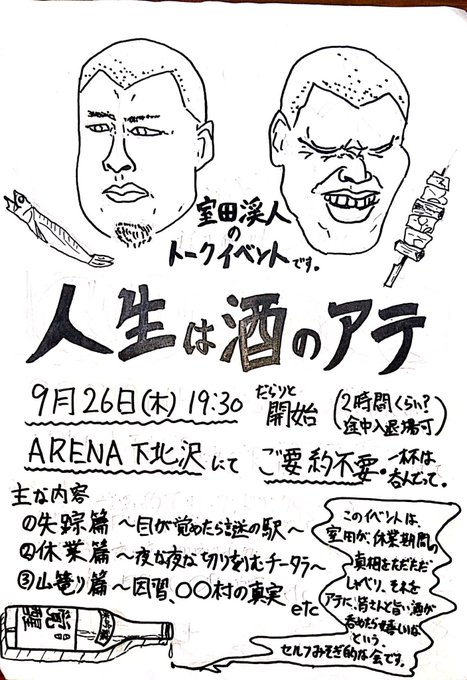 室田渓人
の
トークイベントです。
人生は酒のアテ
9月26日(木) 19:30 だらりと開始 (2時間くらい?途中入退場可)
ARENA下北沢にて ご要約不要。一杯は呑んでって。
主な内容
①失踪篇 〜目が覚めたら謎の駅〜
②休業篇 〜夜な夜な切り刻むチータラ〜
③山篭り篇 〜因習、〇〇村の真実
etc
このイベントは、
室田が、休業期間の
真相をただただ
しゃべり、それを
アテに、皆さんと旨い酒が
呑めたら嬉しいな
という、
セルフみそぎ的な会です。